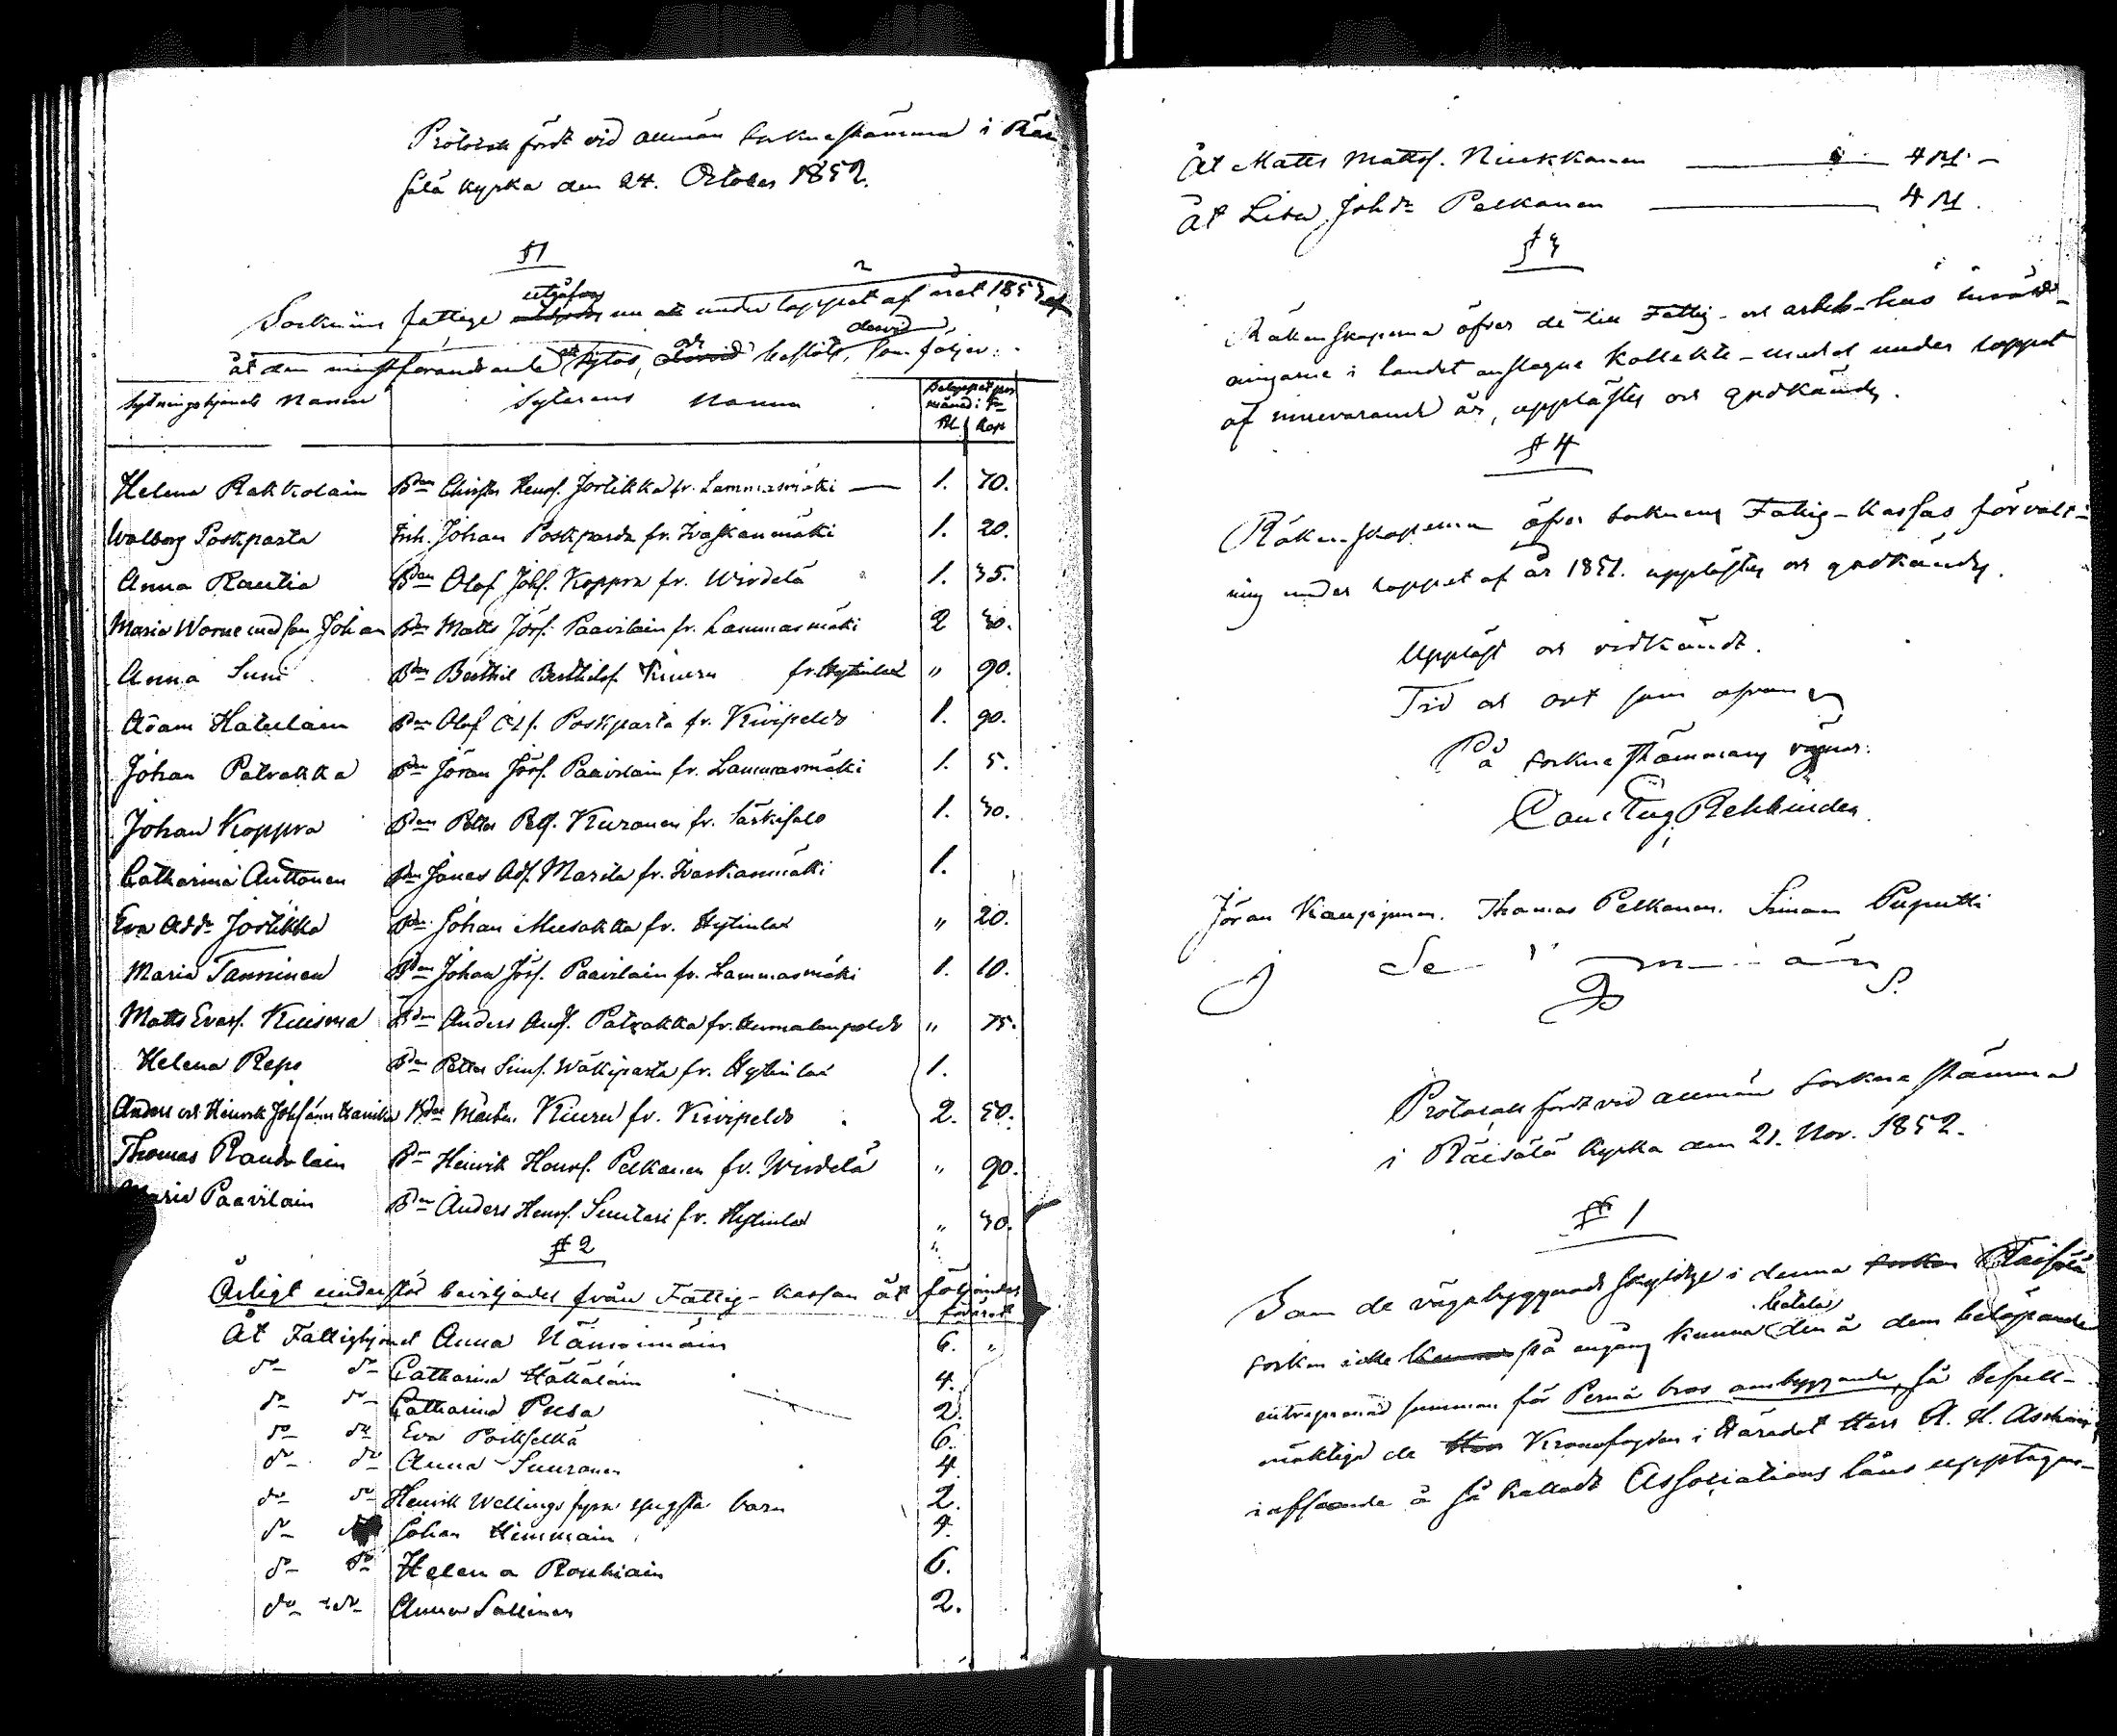 Protokoll fördt vid allmän Sockne stämma i Räi
sälä kyrka den 24. October 1852.
§ 1
utgåfvos
Socknens fattige nu under loppet af året 1853
dervid
åt den minstfordrande att sytas, och beslöts, som följer:
Sytningshjonets Namn Sytarens Namn Beloppet per månad i
Rbl Kop
Helena Rakkolain Bdn Christer Henrs. Jortikka fr. Lammasmäki — 1. 70.
Walborg Poskparta Inh. Johan Poskparta fr. Ivaskanmäki 1. 20.
Anna Rautia Bdn Olof Johs. Koppra fr. Wirdelä 1. 35.
Maria Worne med son Johan Bdn Matts Jörs. Paavilain fr. Lammasmäki 2 30.
Anna Suni Bdn Berthil Berthilss. Kiuru fr. Hytinlax „ 90.
Adam Hatulain Bdn Olof Ols. Poskparta fr. Kivipeldo 1. 90.
Johan Patrakka Bdn Jöran Jörs. Paavilain fr. Lammasmäki 1. 5.
Johan Koppra Bdn Petter Pets. Kuronen fr. Särkisalo 1. 30.
Catharina Anttonen Bdn Jonas Ads. Marila fr. Ivaskanmäki 1.
Eva Addr Jortikka Bdn Johan Musakka fr. Hytinlax „ 20.
Maria Tanninen Bdn Johan Jörs. Paavilain fr. Lammasmäki 1. 10.
Matts Evas. Kuisma Bdn Anders Ands. Patrakka fr. Humalanpeldo „ 75.
Helena Repo Bdn Petter Sims. Wäkiparta fr. Hytinlax 1.
Anders och Henrik Johssöner Bdn Mårten Kiuru fr. Kivipeldo 2. 50.
Thomas Randolain Bdn Henrik Henrs. Pelkonen fr. Wirdelä „ 90.
Maria Paavilain Bdn Anders Henrs. Suutari fr. Hytinlax „ 30.
§ 2
Årligt understöd beviljades från Fattig-kassan åt följande
Åt Fattighjonet Anna Hämmimäin 6. „
do do Catharina Hällälain 4.
do do Catharina Pusa 2.
do do Eva Poikselkä 6.
do do Anna Suuronen 4
do do Henrik Wellings fyra yngsta barn 2.
do do Johan Himmain 4.
do do Helena Rouhiain 6.
do do Anna Sallinen 2.
Åt Matts Mattss. Niukkanen — 4 Rbl. —
Åt Lisa Johdr Pelkonen — 4 Rbl.
§ 3
Räkenskaperna öfver de till Fattig- och arbets-hus inrätt-
ningarne i landet anslagne Kollekte-medel under loppet
af innevarande år, upplästes och godkändes.
§ 4
Räkenskaperna öfver socknens Fattig-Kassas förvalt-
ning under loppet af år 1851. upplästes och godkändes.
Uppläst och vidkändt.
Tid och ort som ofvan
På sockne stämmans vägnar:
Const. Aug. Rehbinder.
Jöran Kauppinen. Thomas Pelkonen. Simon Puputti
Protokoll fördt vid allmän sockne stämma
i Räisälä kyrka den 21. Nov. 1852.
§ 1
Som de vägabyggnads skyldige i denna Räisälä
betala
socken icke på engång kunna den å dem belöpande
entreprenad summan för Pernä bros ombyggande, så befull-
mäktiga de Kronofogden i Häradet Herr A. H. Aschan
i afseende å så kallade Associations låns upptagan-